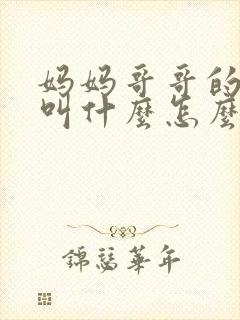 妈妈哥哥的
叫什麼怎麼
錦瑟華年